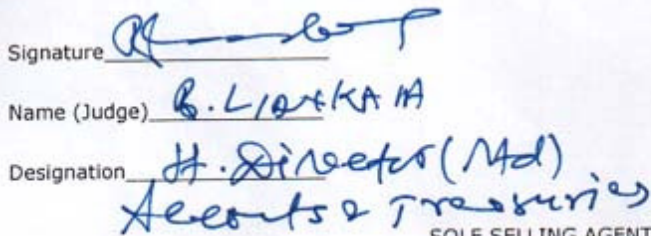 Signature
Name (Judge) B. LIANKAIA
Designation Jt. Director (Md)
Accounts & Treasuries
SOLE SELLING AGENT